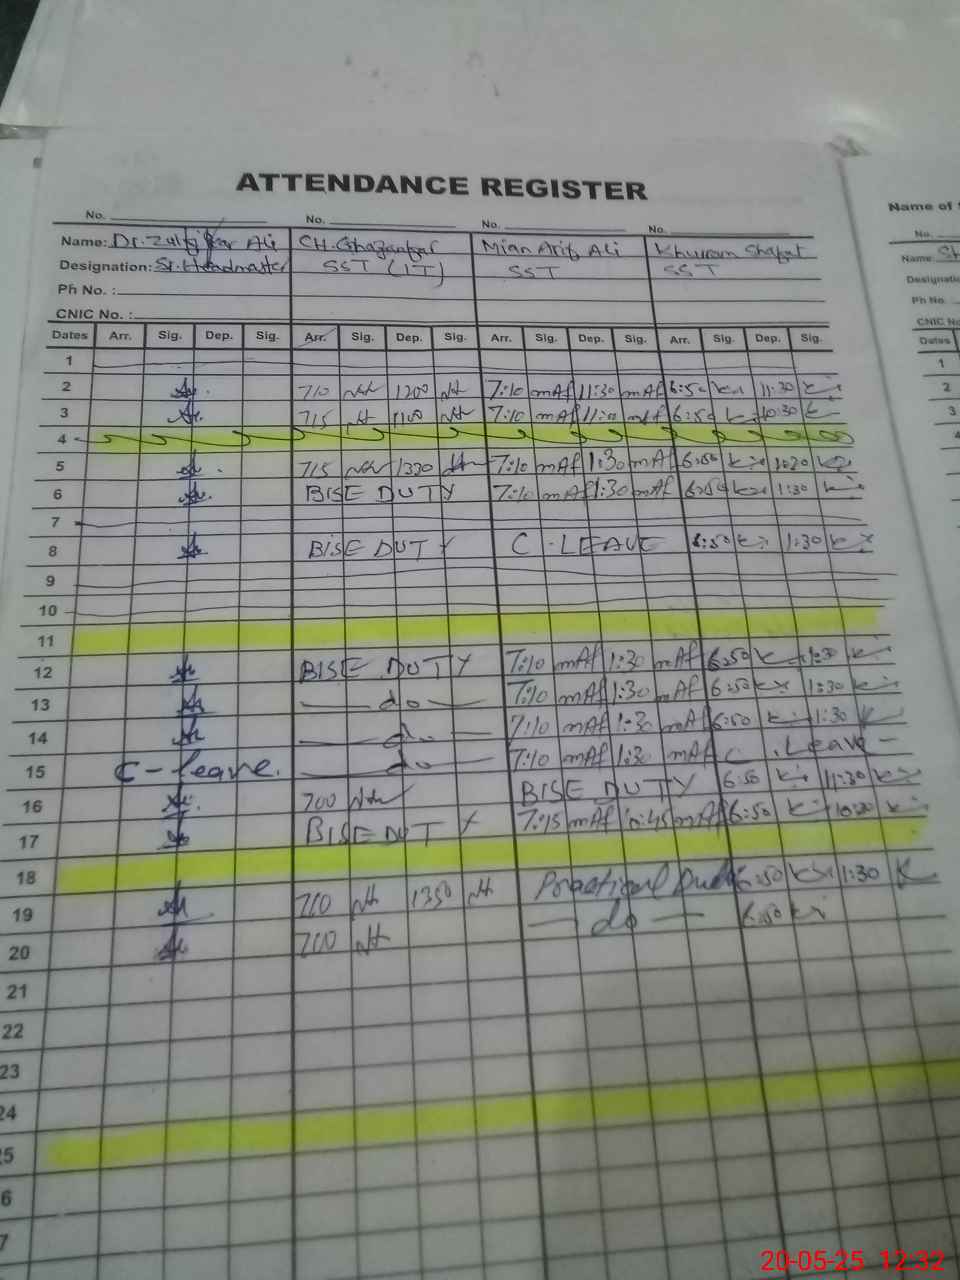 ATTENDANCE REGISTER
No. No. No. No.
Name: Dr. Zulfiqar Ali CH. Ghazanfar Mian Arif Ali Khuram Shafqat
Designation: Sr. Headmaster SST (IT) SST SST
Ph No. :
CNIC No. :
Dates Arr. Sig. Dep. Sig. Arr. Sig. Dep. Sig. Arr. Sig. Dep. Sig. Arr. Sig. Dep. Sig.
1
2 710 1200 7:10 mAf 11:30 mAf 6:50 11:30
3 715 1100 7:10 mAf 11:20 mAf 6:50 10:30
4
5 715 1330 7:10 mAf 1:30 mAf 6:50 1:30
6 BISE DUTY 7:10 mAf 1:30 mAf 6:50 1:30
7
8 BISE DUTY C-LEAVE 6:50 1:30
9
10
11
12 BISE DUTY 7:10 mAf 1:30 mAf 6:50 1:30
13 — do — 7:10 mAf 1:30 mAf 6:50 1:30
14 — do — 7:10 mAf 1:30 mAf 6:50 1:30
15 C-leave. — do — 7:10 mAf 1:30 mAf C. Leave
16 700 BISE DUTY 6:50 11:30
17 BISE DUTY 7:15 mAf 10:45 mAf 6:50 10:30
18
19 710 1350 Practical 6:50 1:30
20 700 — do — 6:50
21
22
23
24
25
6
7
Name of
No.
Name:
Designati
Ph No.
CNIC No
Dates
1
2
3
20-05-25 12:32